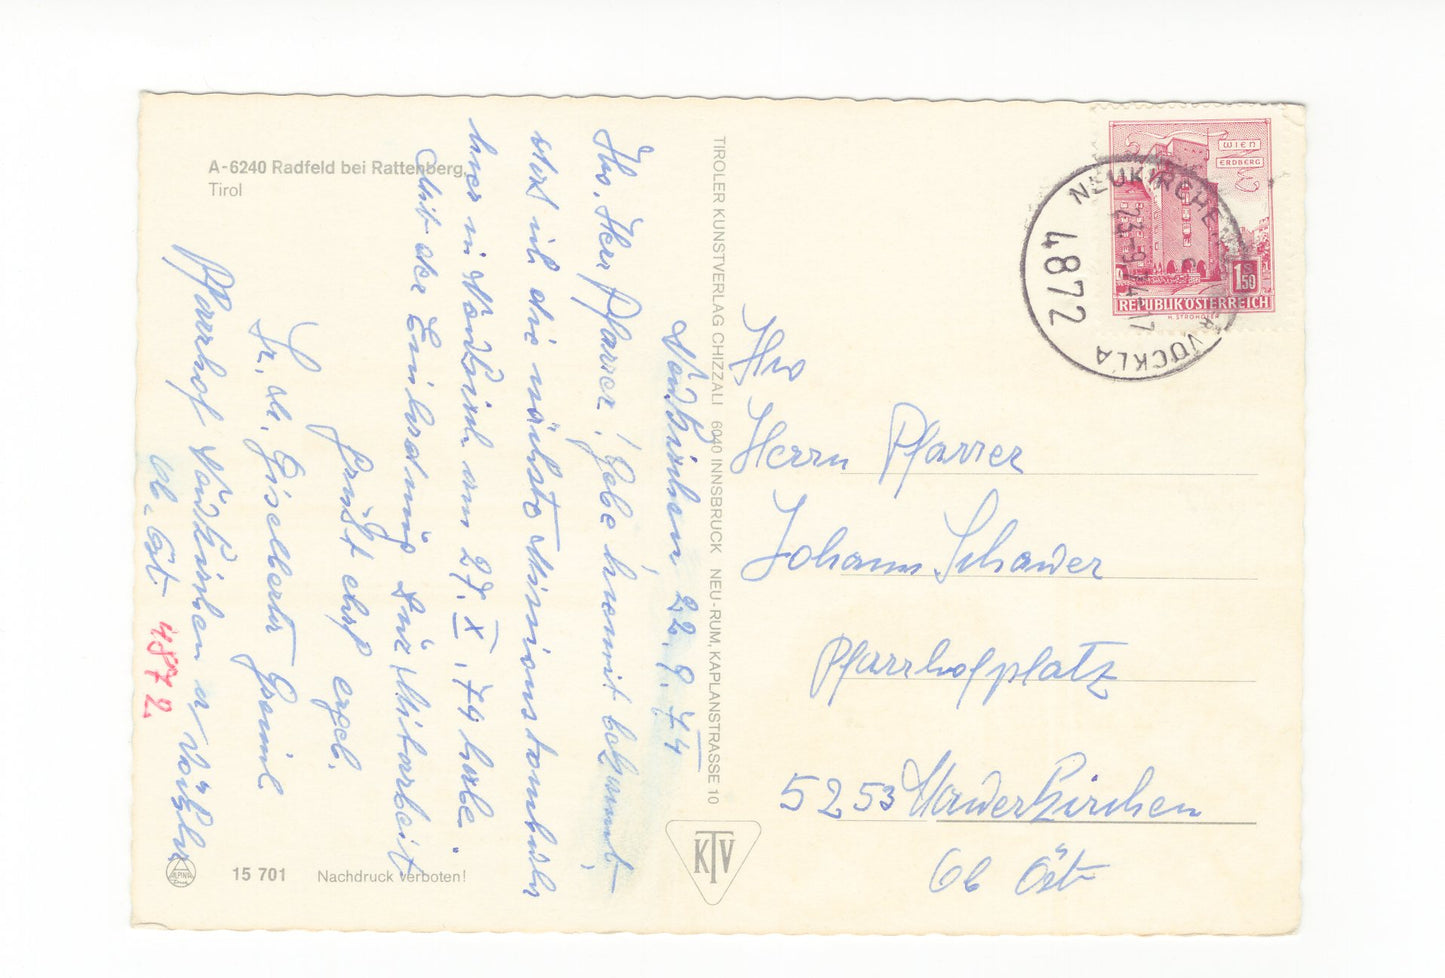 A-6240 Radfeld bei Rattenberg,
Tirol
Neukirchen, 22.9.74
Hw. Herr Pfarrer! Gebe hiermit bekannt,
daß ich die nächste Missionstombola
hier in Neukirch. am 27. X. 74 halte.
Mit der Einladung zur Mitarbeit
grüßt ehrf. ergeb.
Pfarrhof Neukirchen a/ Vöckla
Ob. Öst. 4872
TIROLER KUNSTVERLAG CHIZZALI 6040 INNSBRUCK NEU-RUM, KAPLANSTRASSE 10
WIEN
ERDBERG
1,50
REPUBLIK ÖSTERREICH
NEUKIRCHEN VÖCKLA
23.-9.74-17
4872
Hw
Herrn Pfarrer
Johann
Pfarrhofplatz
5253
Ob Öst.
KTV
ALPINA
15 701 Nachdruck verboten!